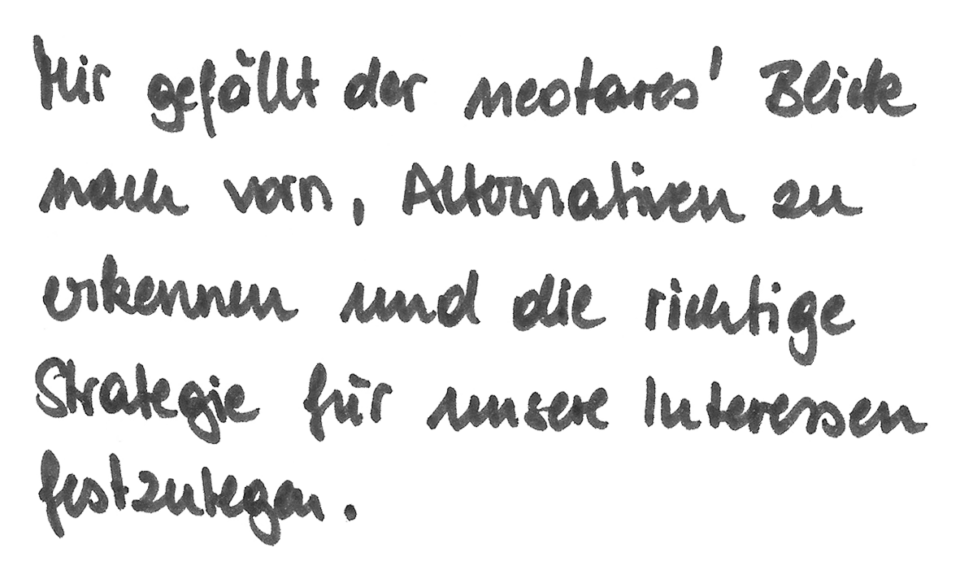 Mir gefällt der neotares' Blick
nach vorn, Alternativen zu
erkennen und die richtige
Strategie für unsere Interessen
festzulegen.